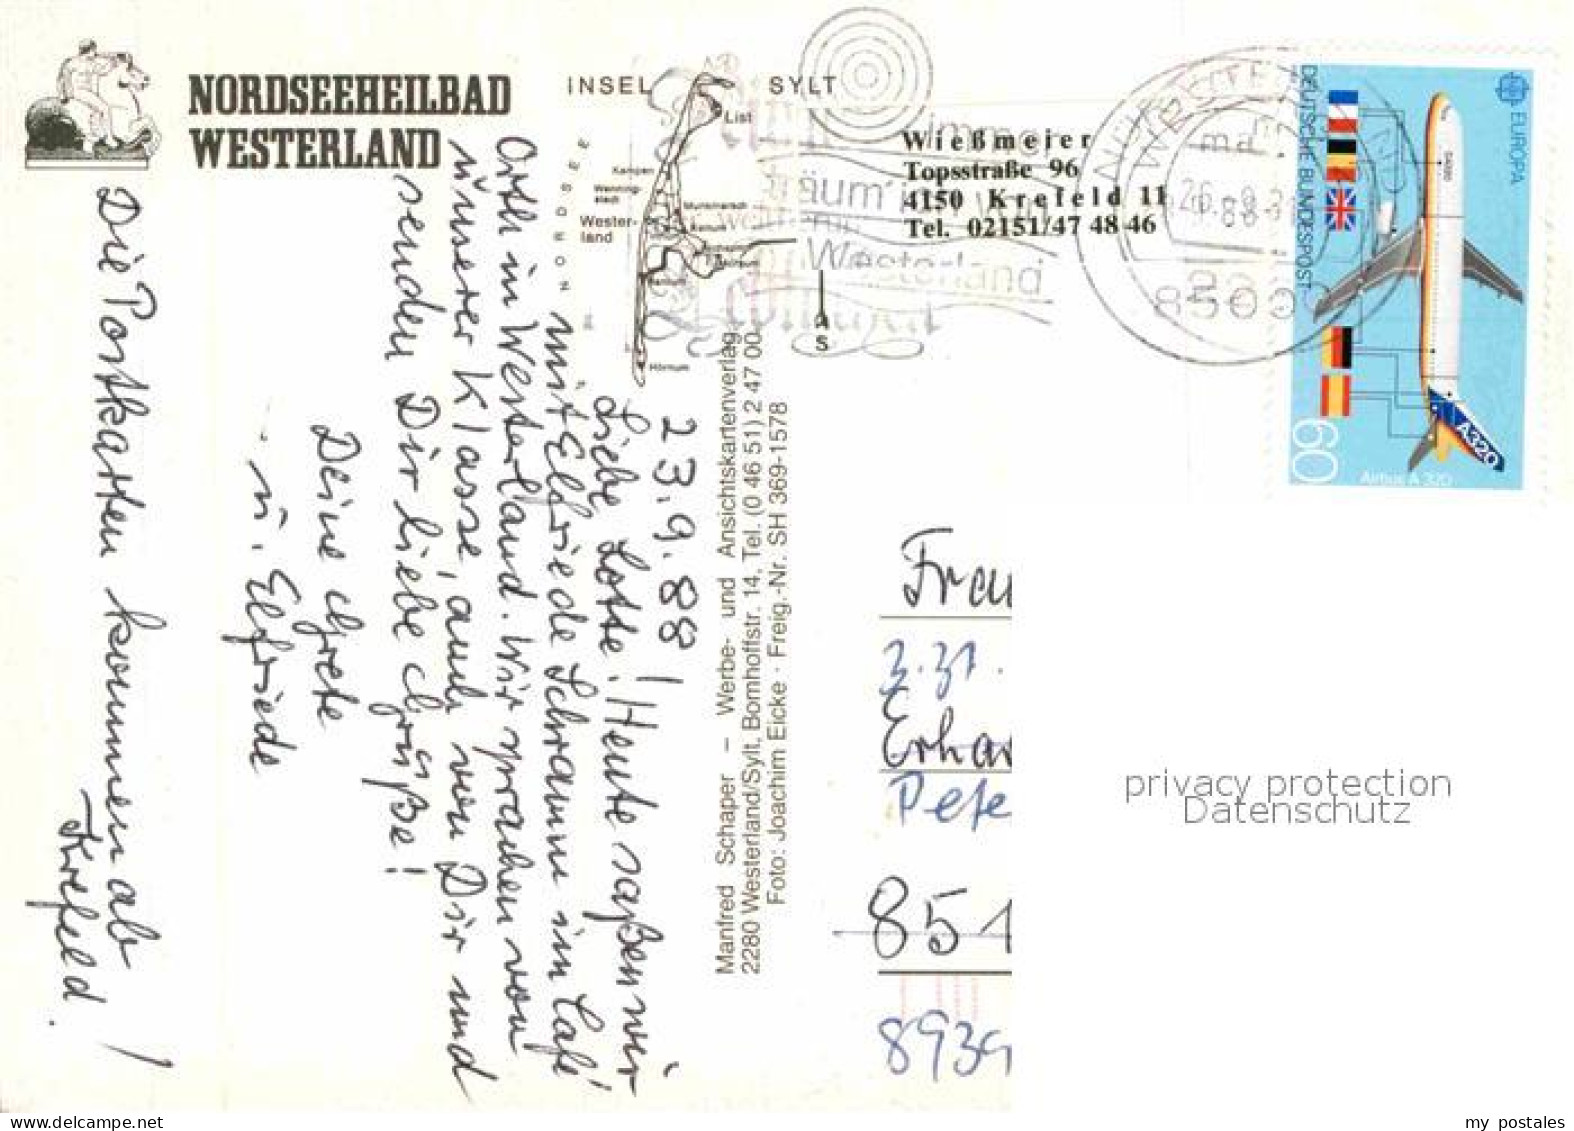 NORDSEEHEILBAD
WESTERLAND
INSEL SYLT
NORDSEE
List
Kampen
Wenning-
stedt
Munkmarsch
Wester-
land
Keitum
Rantum
Hörnum
S
Wießmeier
Topsstraße 96
4150 Krefeld 11
Tel. 02151/47 48 46
Westerland
8500
DEUTSCHE BUNDESPOST
EUROPA
A320
Airbus A 320
60
23.9.88
Liebe Lotte! Heute saßen wir
mit Elfriede Schramm im Café
Orth in Westerland. Wir sprachen von
unserer Klasse, auch von Dir und
senden Dir liebe Grüße!
Deine Grete
u. Elfriede
Die Postkarten kommen ab
Krefeld.
Manfred Schaper – Werbe- und Ansichtskartenverlag
2280 Westerland/Sylt, Bomhoffstr. 14, Tel. (0 46 51) 2 47 00
Foto: Joachim Eicke · Freig.-Nr. SH 369-1578
Frau
3.31.
Erhar
Pete
851
8939
privacy protection
Datenschutz
delcampe.net
my postales